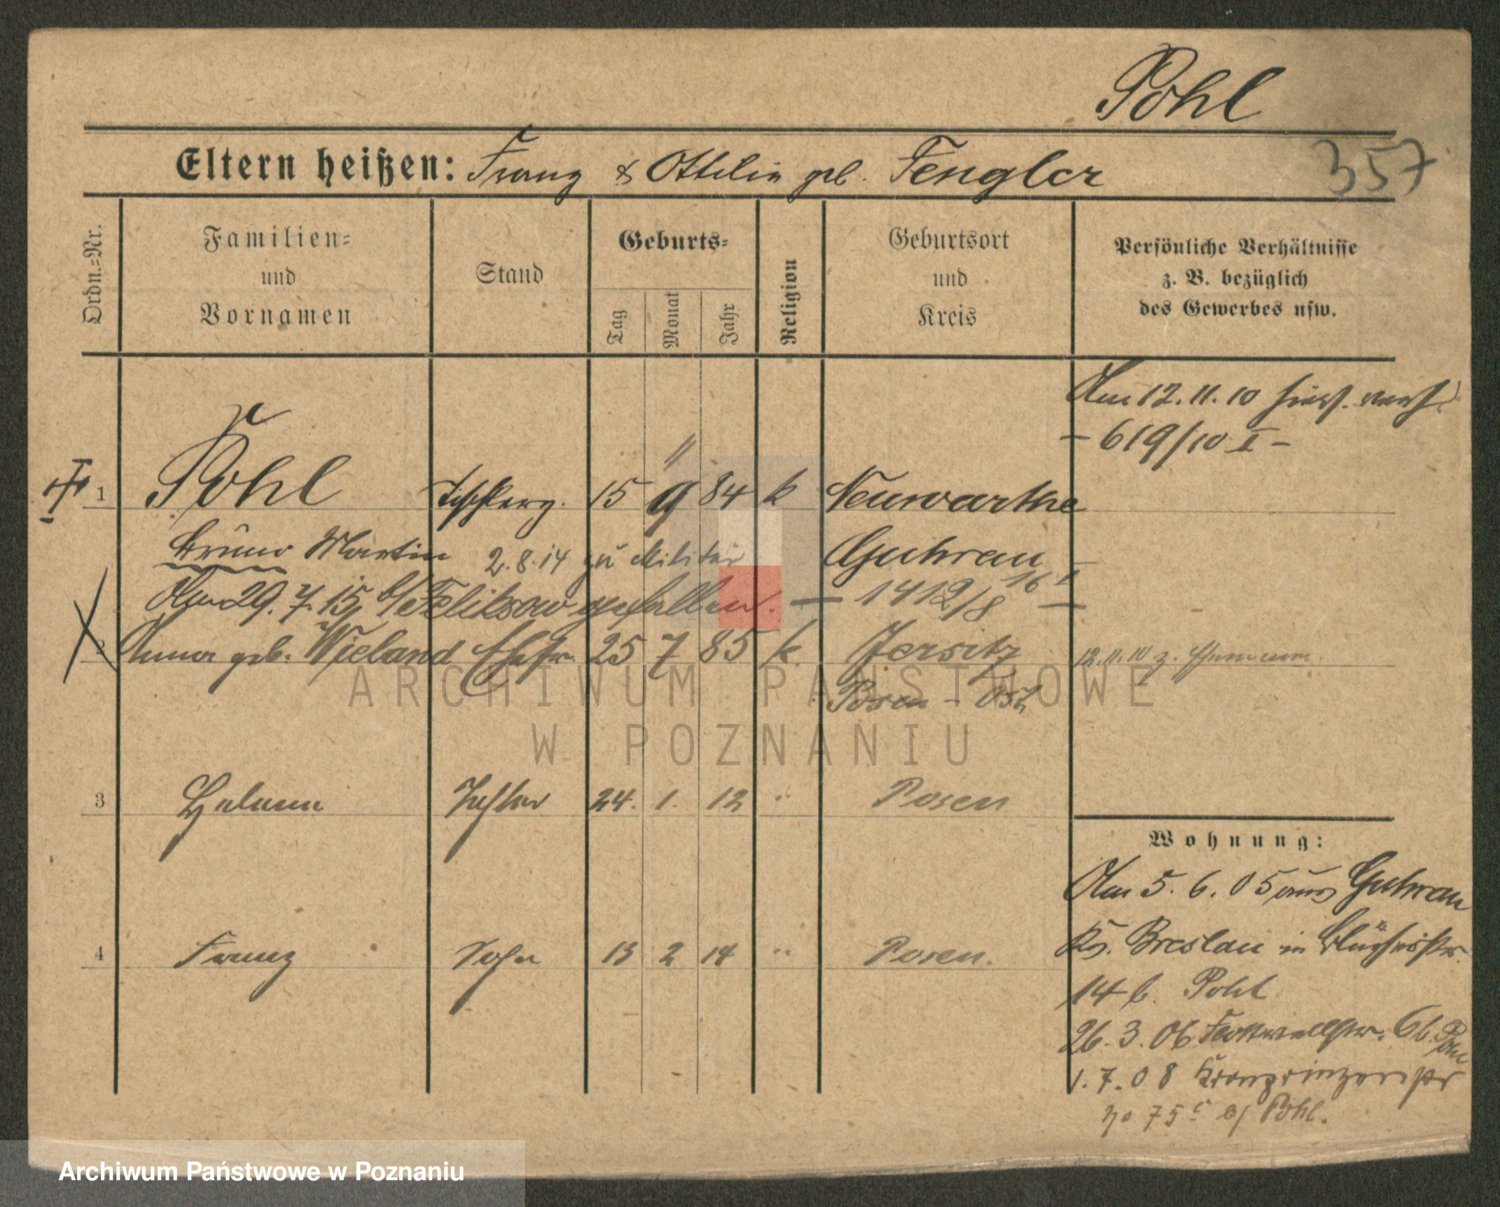 Pohl
357
Eltern heißen: Franz & Ottilie geb. Fengler
Ordn.-Nr.
Familien-
und
Vornamen
Stand
Geburts-
Tag
Monat
Jahr
Religion
Geburtsort
und
Kreis
Persönliche Verhältnisse
z. B. bezüglich
des Gewerbes usw.
Am 12.11.10 hies. verh.
- 619/10 I -
1 Pohl 15 9 84 k Neuwarthe
Bruno Martin 2.8.14 zu Militär Guhrau
Am 29.7.15 gefallen. - 1412/8 16 II -
2 Anna geb. Wieland Ehefr. 25 7 85 k. Jersitz 12.11.10 z.
Posen - Ost
ARCHIWUM PAŃSTWOWE
W POZNANIU
3 Helene Tochter 24. 1. 12 " Posen
Wohnung:
Am 5.6.05 aus Guhrau
Ks. Breslau in Blücherstr.
4 Franz Sohn 13 2 14 " Posen.
14 b. Pohl
26.3.06 6b. Pohl
1.7.08 Kronprinzenstr
No 75c b/ Pohl.
Archiwum Państwowe w Poznaniu